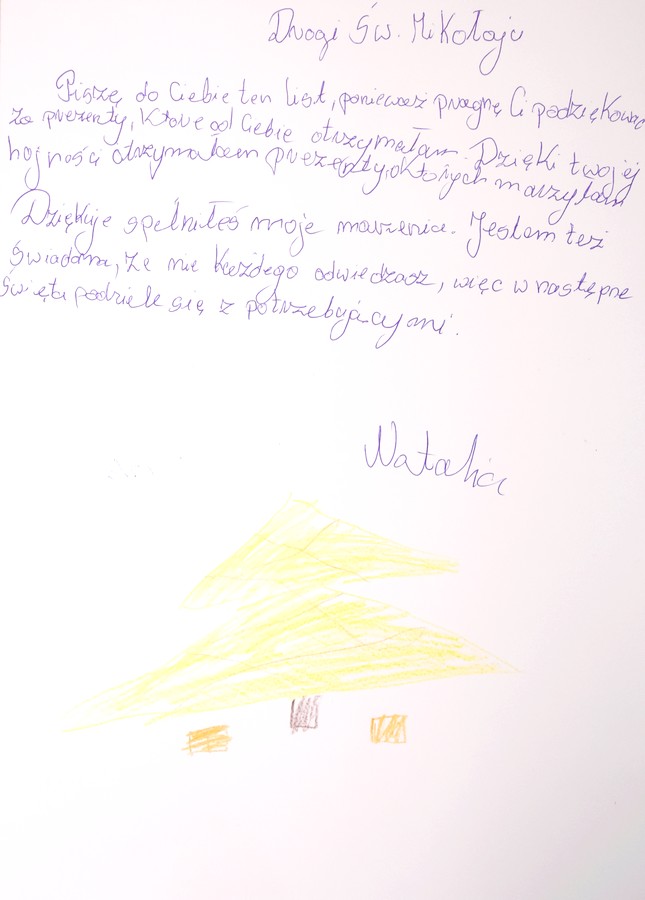 Drogi Św. Mikołaju
Piszę do Ciebie ten list, ponieważ pragnę Ci podziękować
za prezenty, które od Ciebie otrzymałam. Dzięki twojej
hojności otrzymałam prezenty, o których marzyłam
Dziękuje spełniłeś moje marzenia. Jestem też
świadoma, że nie każdego odwiedzasz, więc w następne
święta podziele się z potrzebującymi.
Natalia